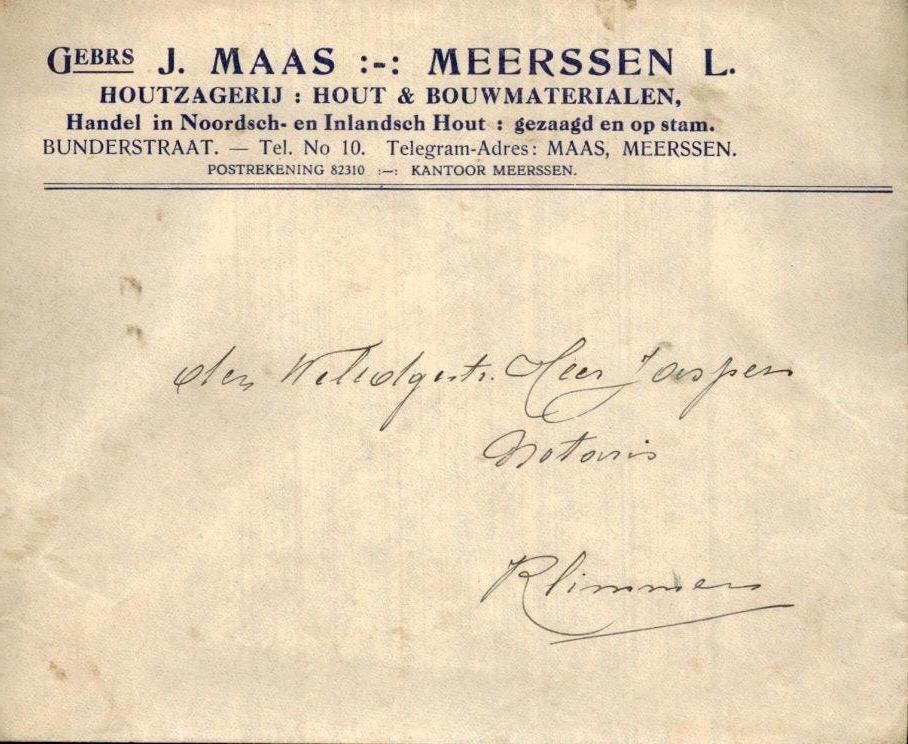 GEBRS J. MAAS :-: MEERSSEN L.
HOUTZAGERIJ : HOUT & BOUWMATERIALEN,
Handel in Noordsch- en Inlandsch Hout : gezaagd en op stam.
BUNDERSTRAAT. — Tel. No 10. Telegram-Adres: MAAS, MEERSSEN.
POSTREKENING 82310 :–: KANTOOR MEERSSEN.
den Weledgestr. Heer Jaspers
Notaris
Klimmen